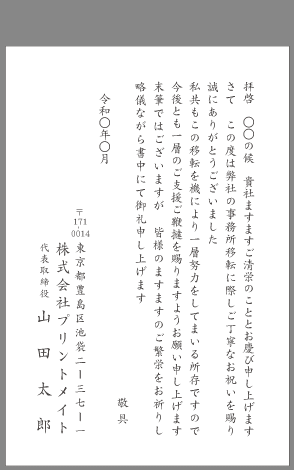 拝啓　〇〇の候　貴社ますますご清栄のこととお慶び申し上げます
さて　この度は弊社の事務所移転に際しご丁寧なお祝いを賜り
誠にありがとうございました
私共もこの移転を機により一層努力をしてまいる所存ですので
今後とも一層のご支援ご鞭撻を賜りますようお願い申し上げます
末筆ではございますが　皆様のますますのご繁栄をお祈りし
略儀ながら書中にて御礼申し上げます
敬具
令和〇年〇月
〒171 0014
東京都豊島区池袋二ー三七ー一
株式会社プリントメイト
代表取締役　山田太郎